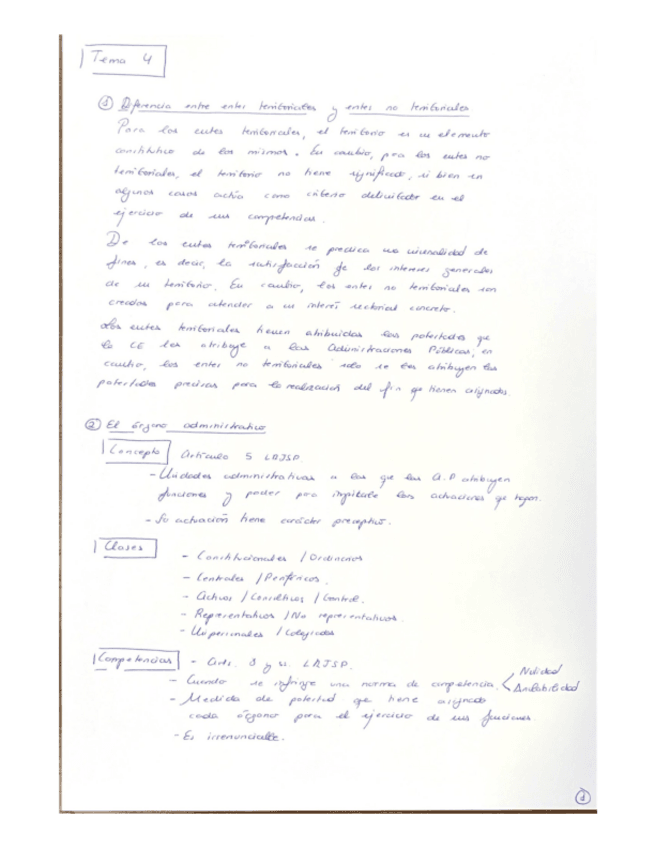 Tema 4
① Diferencia entre entes territoriales y entes no territoriales
Para los entes territoriales, el territorio es un elemento
constitutivo de los mismos. En cambio, para los entes no
territoriales, el territorio no tiene significado, si bien en
algunos casos actúa como criterio delimitador en el
ejercicio de sus competencias.
De los entes territoriales se predica una universalidad de
fines, es decir, la satisfacción de los intereses generales
de su territorio. En cambio, los entes no territoriales son
creados para atender a un interés sectorial concreto.
Los entes territoriales tienen atribuidas las potestades que
la CE les atribuye a las Administraciones Públicas; en
cambio, los entes no territoriales solo se les atribuyen las
potestades precisas para la realización del fin q tienen asignado.
② El órgano administrativo
Concepto Artículo 5 LRJSP.
- Unidades administrativas a las que las A.P atribuyen
funciones y poder para las actuaciones que hagan.
- Su actuación tiene carácter preceptivo.
Clases
- Constitucionales / Ordinarios
- Centrales / Periféricos.
- Activos / Consultivos / Control.
- Representativos / No representativos.
- Unipersonales / Colegiados
Competencias - Arts. 8 y ss. LRJSP.
- Cuando se infringe una norma de competencia. < Nulidad
Anulabilidad
- Medida de potestad que tiene asignado
cada órgano para el ejercicio de sus funciones.
- Es irrenunciable.
1